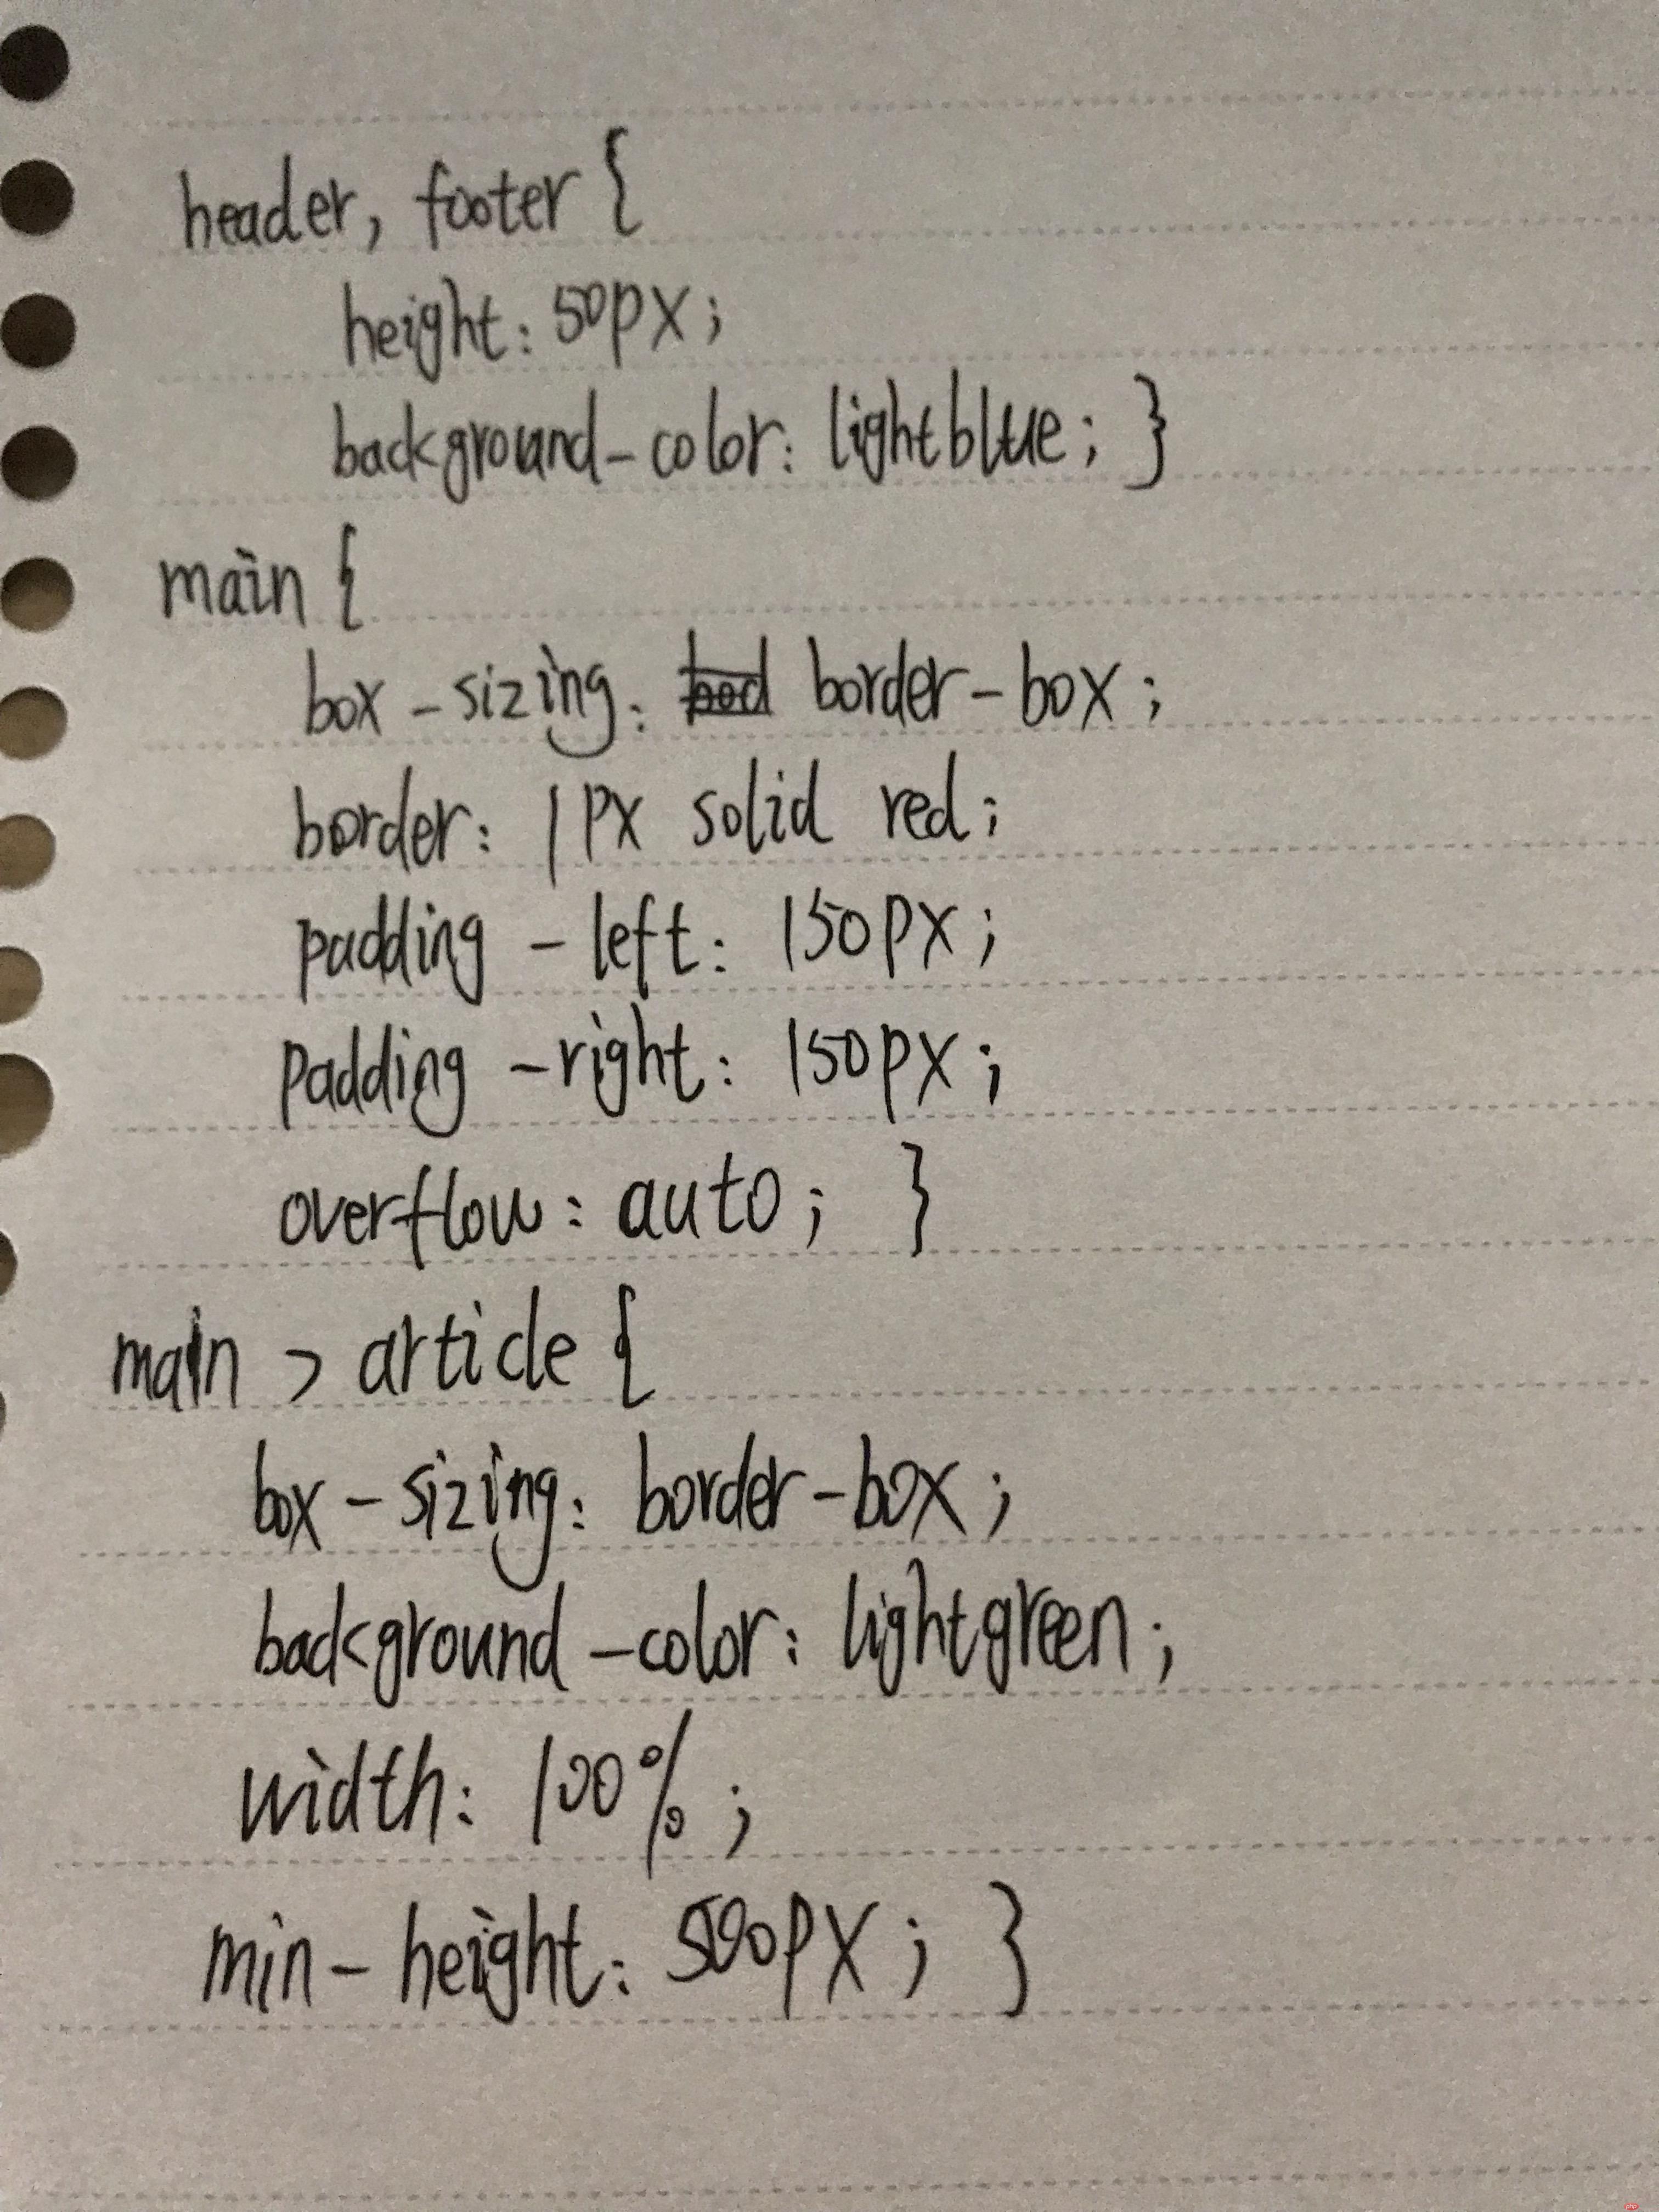 header, footer {
height: 50px;
background-color: lightblue; }
main {
box-sizing: border-box;
border: 1px solid red;
padding-left: 150px;
padding-right: 150px;
overflow: auto; }
main > article {
box-sizing: border-box;
background-color: lightgreen;
width: 100%;
min-height: 500px; }